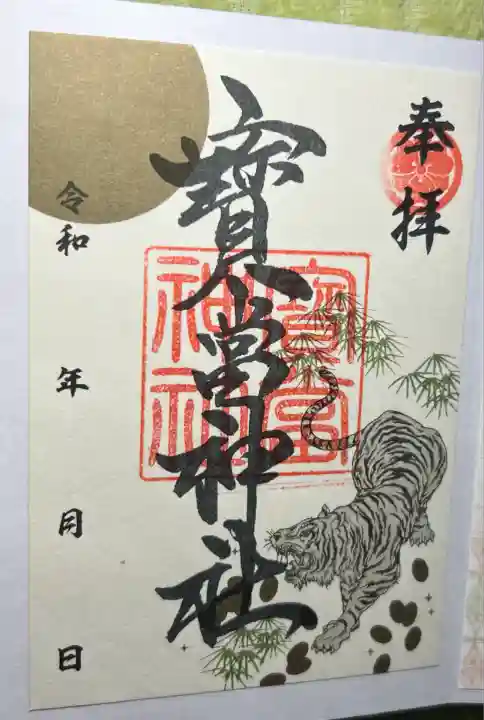 奉拝
寶當神社
寶當
神社
令和 年 月 日